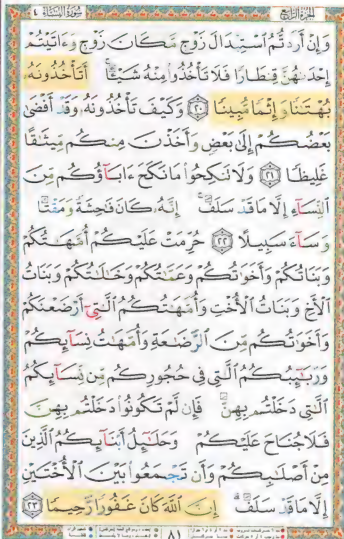 الجزء الرابع سورة النساء ٤
وَإِنْ أَرَدتُّمُ ٱسْتِبْدَالَ زَوْجٍ مَّكَانَ زَوْجٍ وَءَاتَيْتُمْ
إِحْدَىٰهُنَّ قِنطَارًا فَلَا تَأْخُذُوا۟ مِنْهُ شَيْـًٔا ۚ أَتَأْخُذُونَهُۥ
بُهْتَٰنًا وَإِثْمًا مُّبِينًا ٢٠ وَكَيْفَ تَأْخُذُونَهُۥ وَقَدْ أَفْضَىٰ
بَعْضُكُمْ إِلَىٰ بَعْضٍ وَأَخَذْنَ مِنكُم مِّيثَٰقًا
غَلِيظًا ٢١ وَلَا تَنكِحُوا۟ مَا نَكَحَ ءَابَآؤُكُم مِّنَ
ٱلنِّسَآءِ إِلَّا مَا قَدْ سَلَفَ ۚ إِنَّهُۥ كَانَ فَٰحِشَةً وَمَقْتًا
وَسَآءَ سَبِيلًا ٢٢ حُرِّمَتْ عَلَيْكُمْ أُمَّهَٰتُكُمْ
وَبَنَاتُكُمْ وَأَخَوَٰتُكُمْ وَعَمَّٰتُكُمْ وَخَٰلَٰتُكُمْ وَبَنَاتُ
ٱلْأَخِ وَبَنَاتُ ٱلْأُخْتِ وَأُمَّهَٰتُكُمُ ٱلَّٰتِىٓ أَرْضَعْنَكُمْ
وَأَخَوَٰتُكُم مِّنَ ٱلرَّضَٰعَةِ وَأُمَّهَٰتُ نِسَآئِكُمْ
وَرَبَٰٓئِبُكُمُ ٱلَّٰتِى فِى حُجُورِكُم مِّن نِّسَآئِكُمُ
ٱلَّٰتِى دَخَلْتُم بِهِنَّ فَإِن لَّمْ تَكُونُوا۟ دَخَلْتُم بِهِنَّ
فَلَا جُنَاحَ عَلَيْكُمْ وَحَلَٰٓئِلُ أَبْنَآئِكُمُ ٱلَّذِينَ
مِنْ أَصْلَٰبِكُمْ وَأَن تَجْمَعُوا۟ بَيْنَ ٱلْأُخْتَيْنِ
إِلَّا مَا قَدْ سَلَفَ ۗ إِنَّ ٱللَّهَ كَانَ غَفُورًا رَّحِيمًا ٢٣
٨١